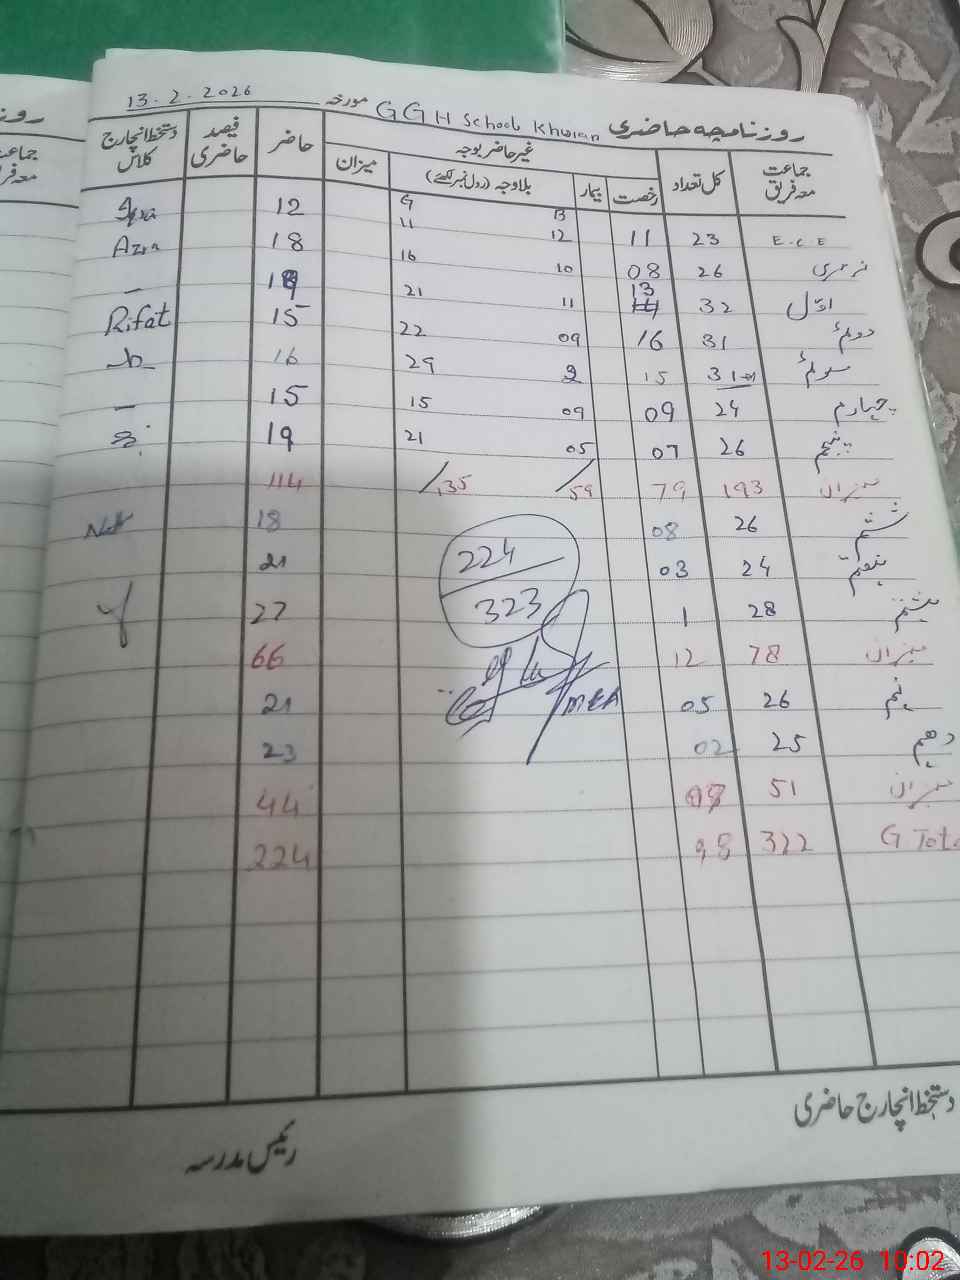 روزنامچہ حاضری GGH School Khoian مورخہ 13.2.2026
جماعت معہ فریق کل تعداد غیر حاضر بوجہ میزان حاضر فیصد حاضری دستخط انچارج کلاس
رخصت بیمار بلاوجہ (رول نمبر لکھیے)
E.C.E 23 11 13 9 12
نرسری 26 08 12 11 18 Azra
اوّل 32 13 10 16 19
دوئم 31 16 11 21 15 Rifat
سوئم 31 15 09 22 16
چہارم 24 09 2 29 15
پنجم 26 07 09 15 19
05 21
میزان 193 79 /59 /135 114
ششم 26 08 18
ہفتم 24 03 21
224
ہشتم 28 1 27
323
میزان 78 12 66
نہم 26 05 21
MEA
دہم 25 02 23
میزان 51 07 44
G Tota 322 98 224
دستخط انچارج حاضری
رئیس مدرسہ
روز
جماعت
معہ فر
13-02-26 10:02